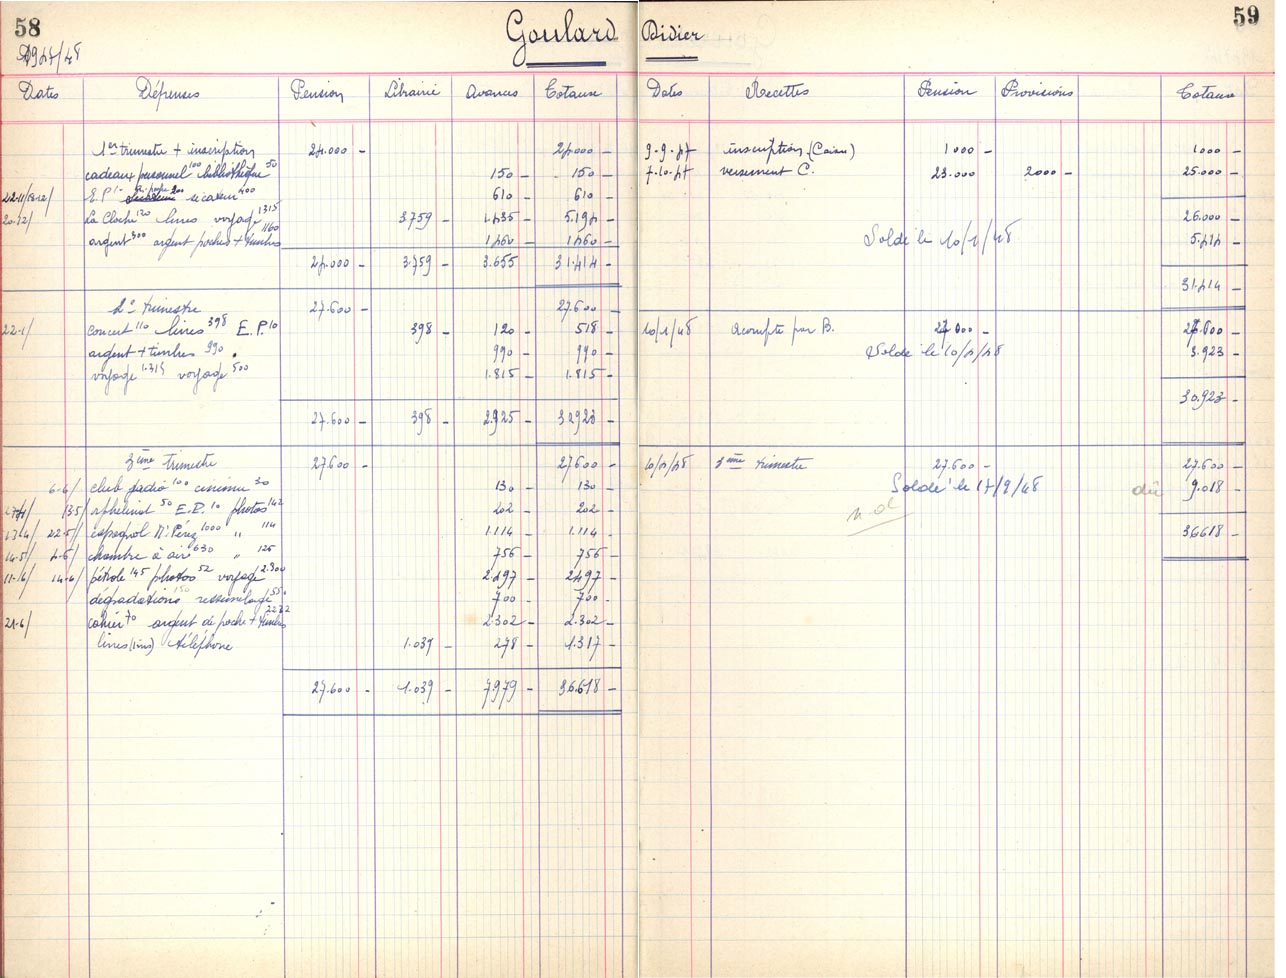 58
1947/48
Goulard
Dates Dépenses Pension Librairie Avances Totaux
1er trimestre + inscription 24.000 - 24000 -
cadeaux personnel 100 bibliothèque 50 150 - 150 -
22-11/13-12/ E.P. 200 sécateur 400 610 - 610 -
20-12/ La Cloche 120 livres voyage 1315 3759 - 1.435 - 5.194 -
argent 300 argent poche + timbres 1160 1.460 - 1.460 -
24.000 - 3.759 - 3.655 31.414 -
2e trimestre 27.600 - 27.600 -
22-1/ concert 110 livres 398 E.P. 10 398 - 120 - 518 -
argent + timbres 990 990 - 990 -
voyage 1.315 voyage 500 1.815 - 1.815 -
27.600 - 398 - 2.925 - 30923 -
3ème trimestre 27.600 - 27.600 -
6-6/ club radio 100 cinéma 30 130 - 130 -
3.5/ orphelinat 50 E.P. 10 photos 142 202 - 202 -
22-5/ espagnol Mr Pérez 1000 " 114 1.114 - 1.114 -
14-5/ 4-6/ chambre à air 630 " 126 756 - 756 -
11-16/ 14-6/ pétrole 145 photos 52 voyage 2.300 2.497 - 2497 -
dégradations 150 ressemelage 550 700 - 700 -
21-6/ cahier 70 argent de poche + timbres 2232 2.302 - 2.302 -
livres téléphone 1.039 - 278 - 1.317 -
27.600 - 1.039 - 7.979 - 36.618 -
59
Didier
Dates Recettes Pension Provisions Totaux
9-9-47 inscription (Caisse) 1000 - 1000 -
7-10-47 versement C. 23.000 2000 - 25.000 -
26.000 -
Soldé le 10/1/48 5.414 -
31.414 -
10/1/48 Acompte par B. 27.000 - 27.000 -
Soldé le 10/4/48 3.923 -
30.923 -
10/4/48 3ème trimestre 27.600 - 27.600 -
Soldé le 17/9/48 dû 9.018 -
36618 -